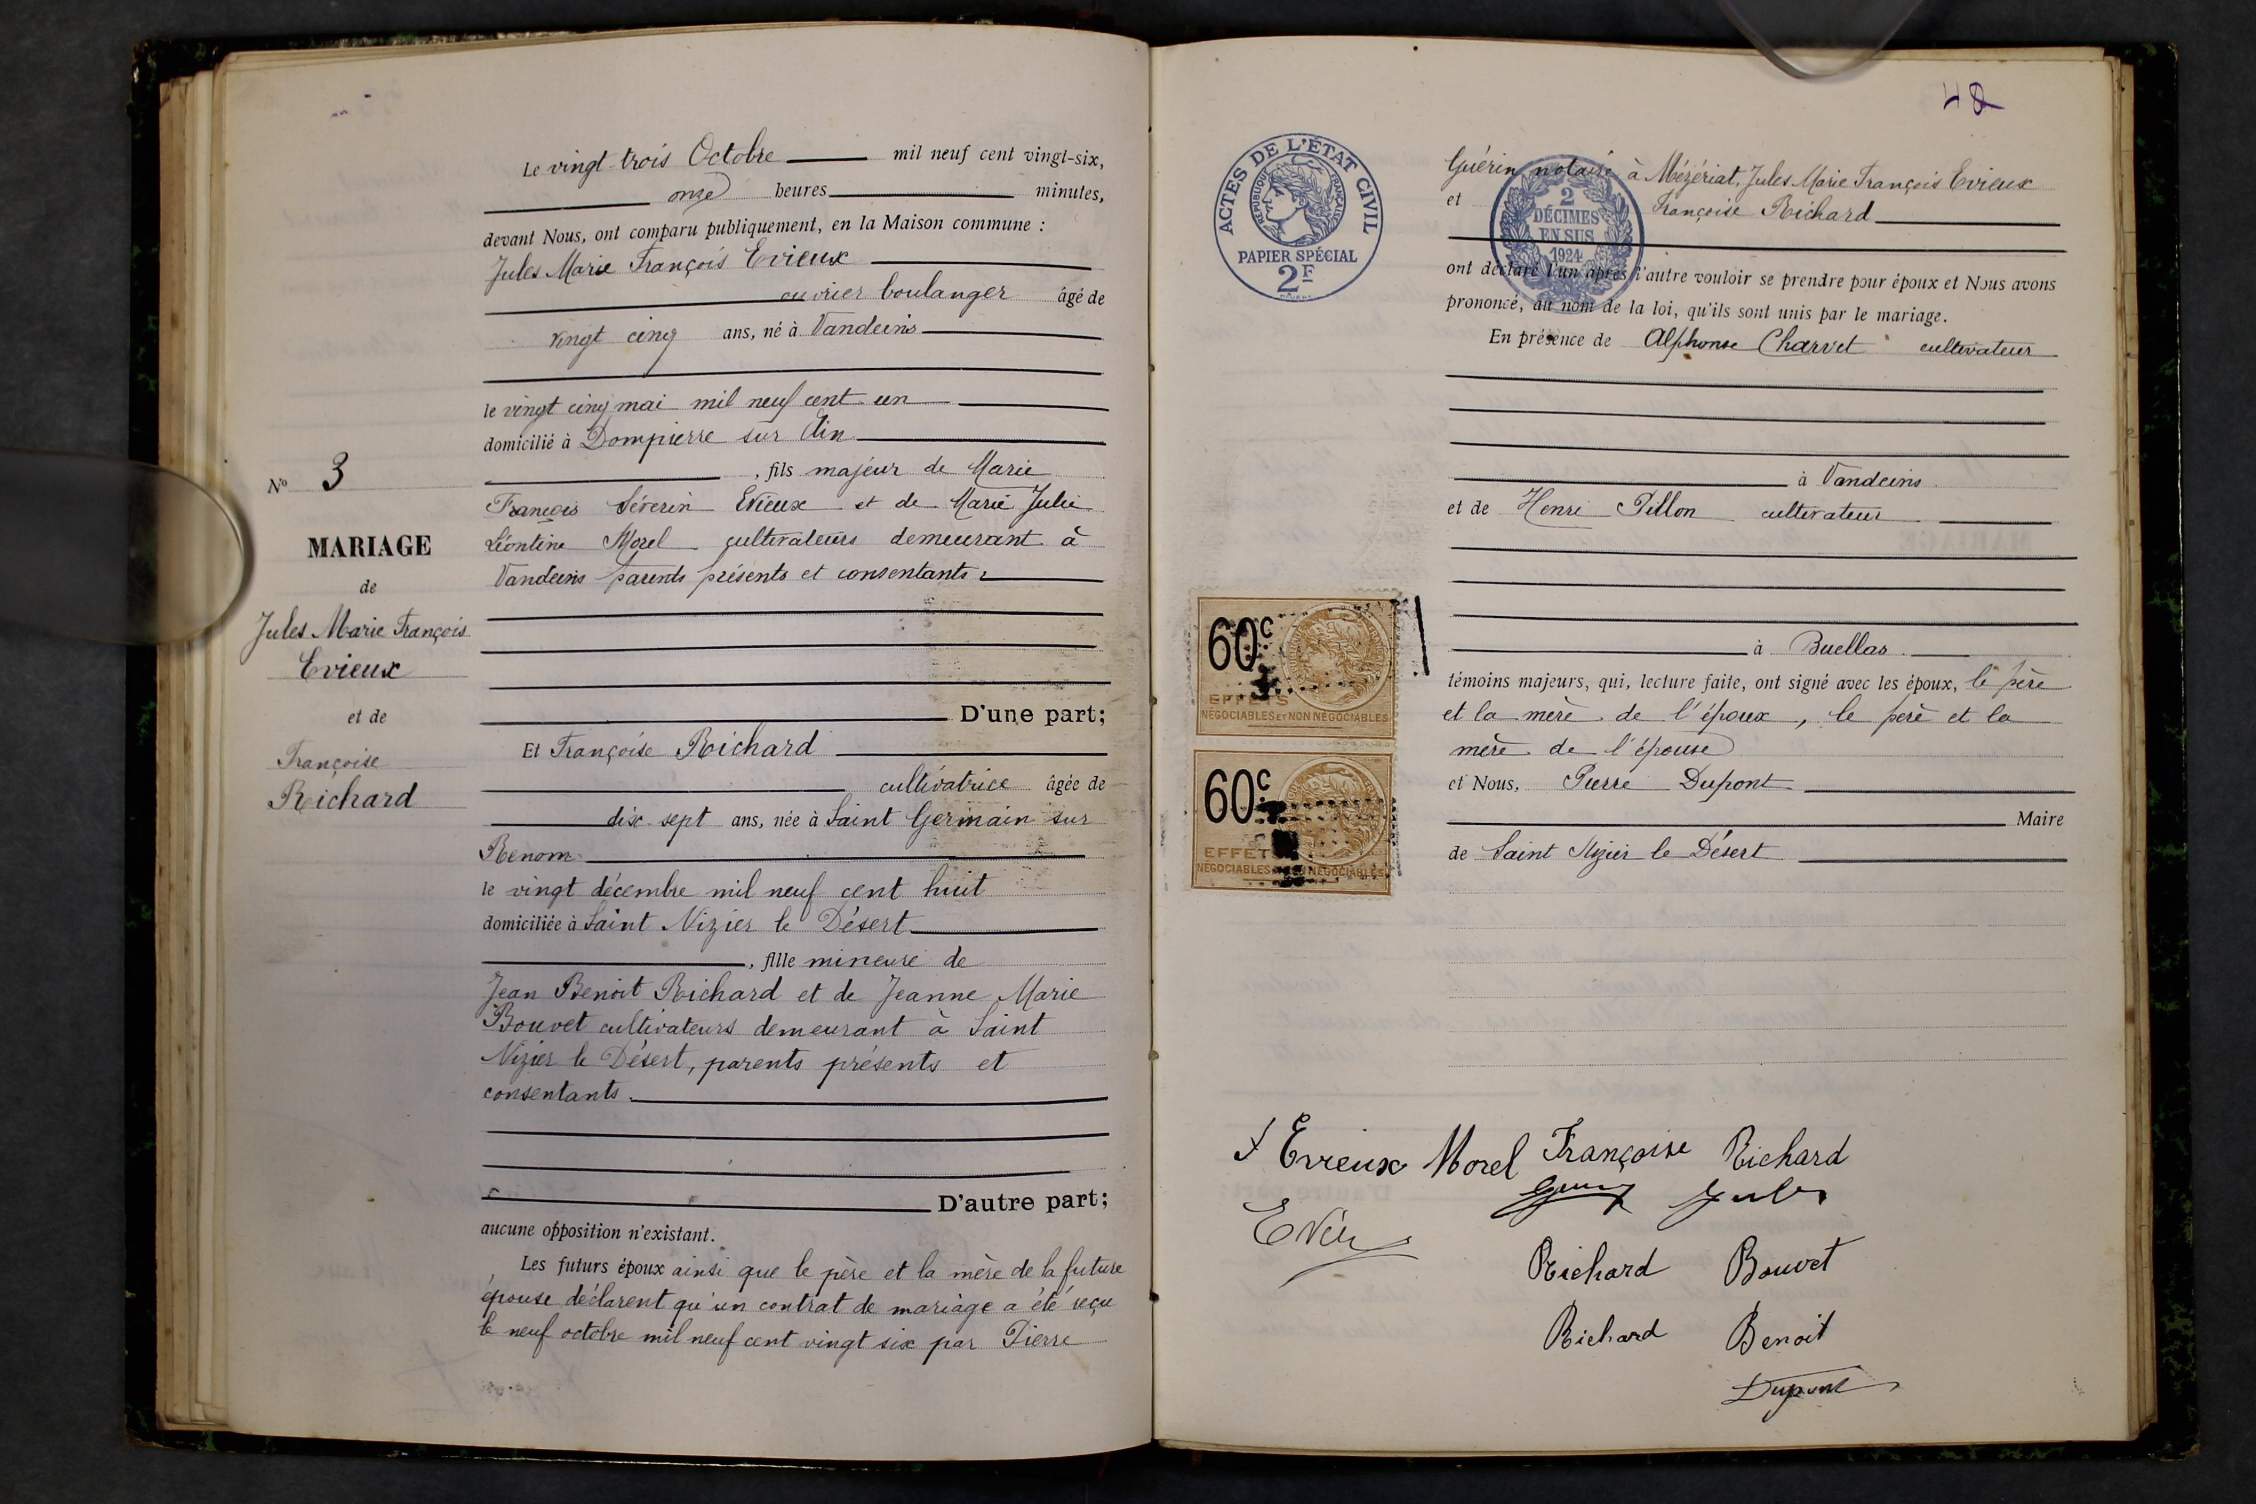 Le vingt trois Octobre mil neuf cent vingt-six,
onze heures minutes,
devant Nous, ont comparu publiquement, en la Maison commune :
Jules Marie François Evieux
ouvrier boulanger âgé de
vingt cinq ans, né à Vandeins
le vingt cinq mai mil neuf cent un
domicilié à Dompierre sur Ain
, fils majeur de Marie
François Séverin Evieux et de Marie Julie
Léontine Morel cultivateurs demeurant à
Vandeins parents présents et consentants.
D'une part;
Et Françoise Richard
cultivatrice âgée de
dix sept ans, née à Saint Germain sur
Renom
le vingt décembre mil neuf cent huit
domiciliée à Saint Nizier le Désert
, fille mineure de
Jean Benoit Richard et de Jeanne Marie
Bouvet cultivateurs demeurant à Saint
Nizier le Désert, parents présents et
consentants.
D'autre part;
aucune opposition n'existant.
Les futurs époux ainsi que le père et la mère de la future
épouse déclarent qu'un contrat de mariage a été reçu
le neuf octobre mil neuf cent vingt six par Pierre
No 3
MARIAGE
de
Jules Marie François
Evieux
et de
Françoise
Richard
48
ACTES DE L'ÉTAT CIVIL
RÉPUBLIQUE FRANÇAISE
PAPIER SPÉCIAL
2F
2
DÉCIMES
EN SUS
1924
Guérin notaire à Mézériat, Jules Marie François Evieux
et Françoise Richard
ont déclaré l'un après l'autre vouloir se prendre pour époux et Nous avons
prononcé, au nom de la loi, qu'ils sont unis par le mariage.
En présence de Alphonse Charvet cultivateur
à Vandeins
et de Henri Pillon cultivateur
à Buellas
témoins majeurs, qui, lecture faite, ont signé avec les époux, le père
et la mère de l'époux, le père et la
mère de l'épouse
et Nous, Pierre Dupont
Maire
de Saint Nizier le Désert
60c
EFFETS
NÉGOCIABLES ET NON NÉGOCIABLES
60c
EFFETS
NÉGOCIABLES ET NON NÉGOCIABLES
Evieux Morel Françoise Richard
Jules
Richard Bouvet
Richard Benoit
Dupont